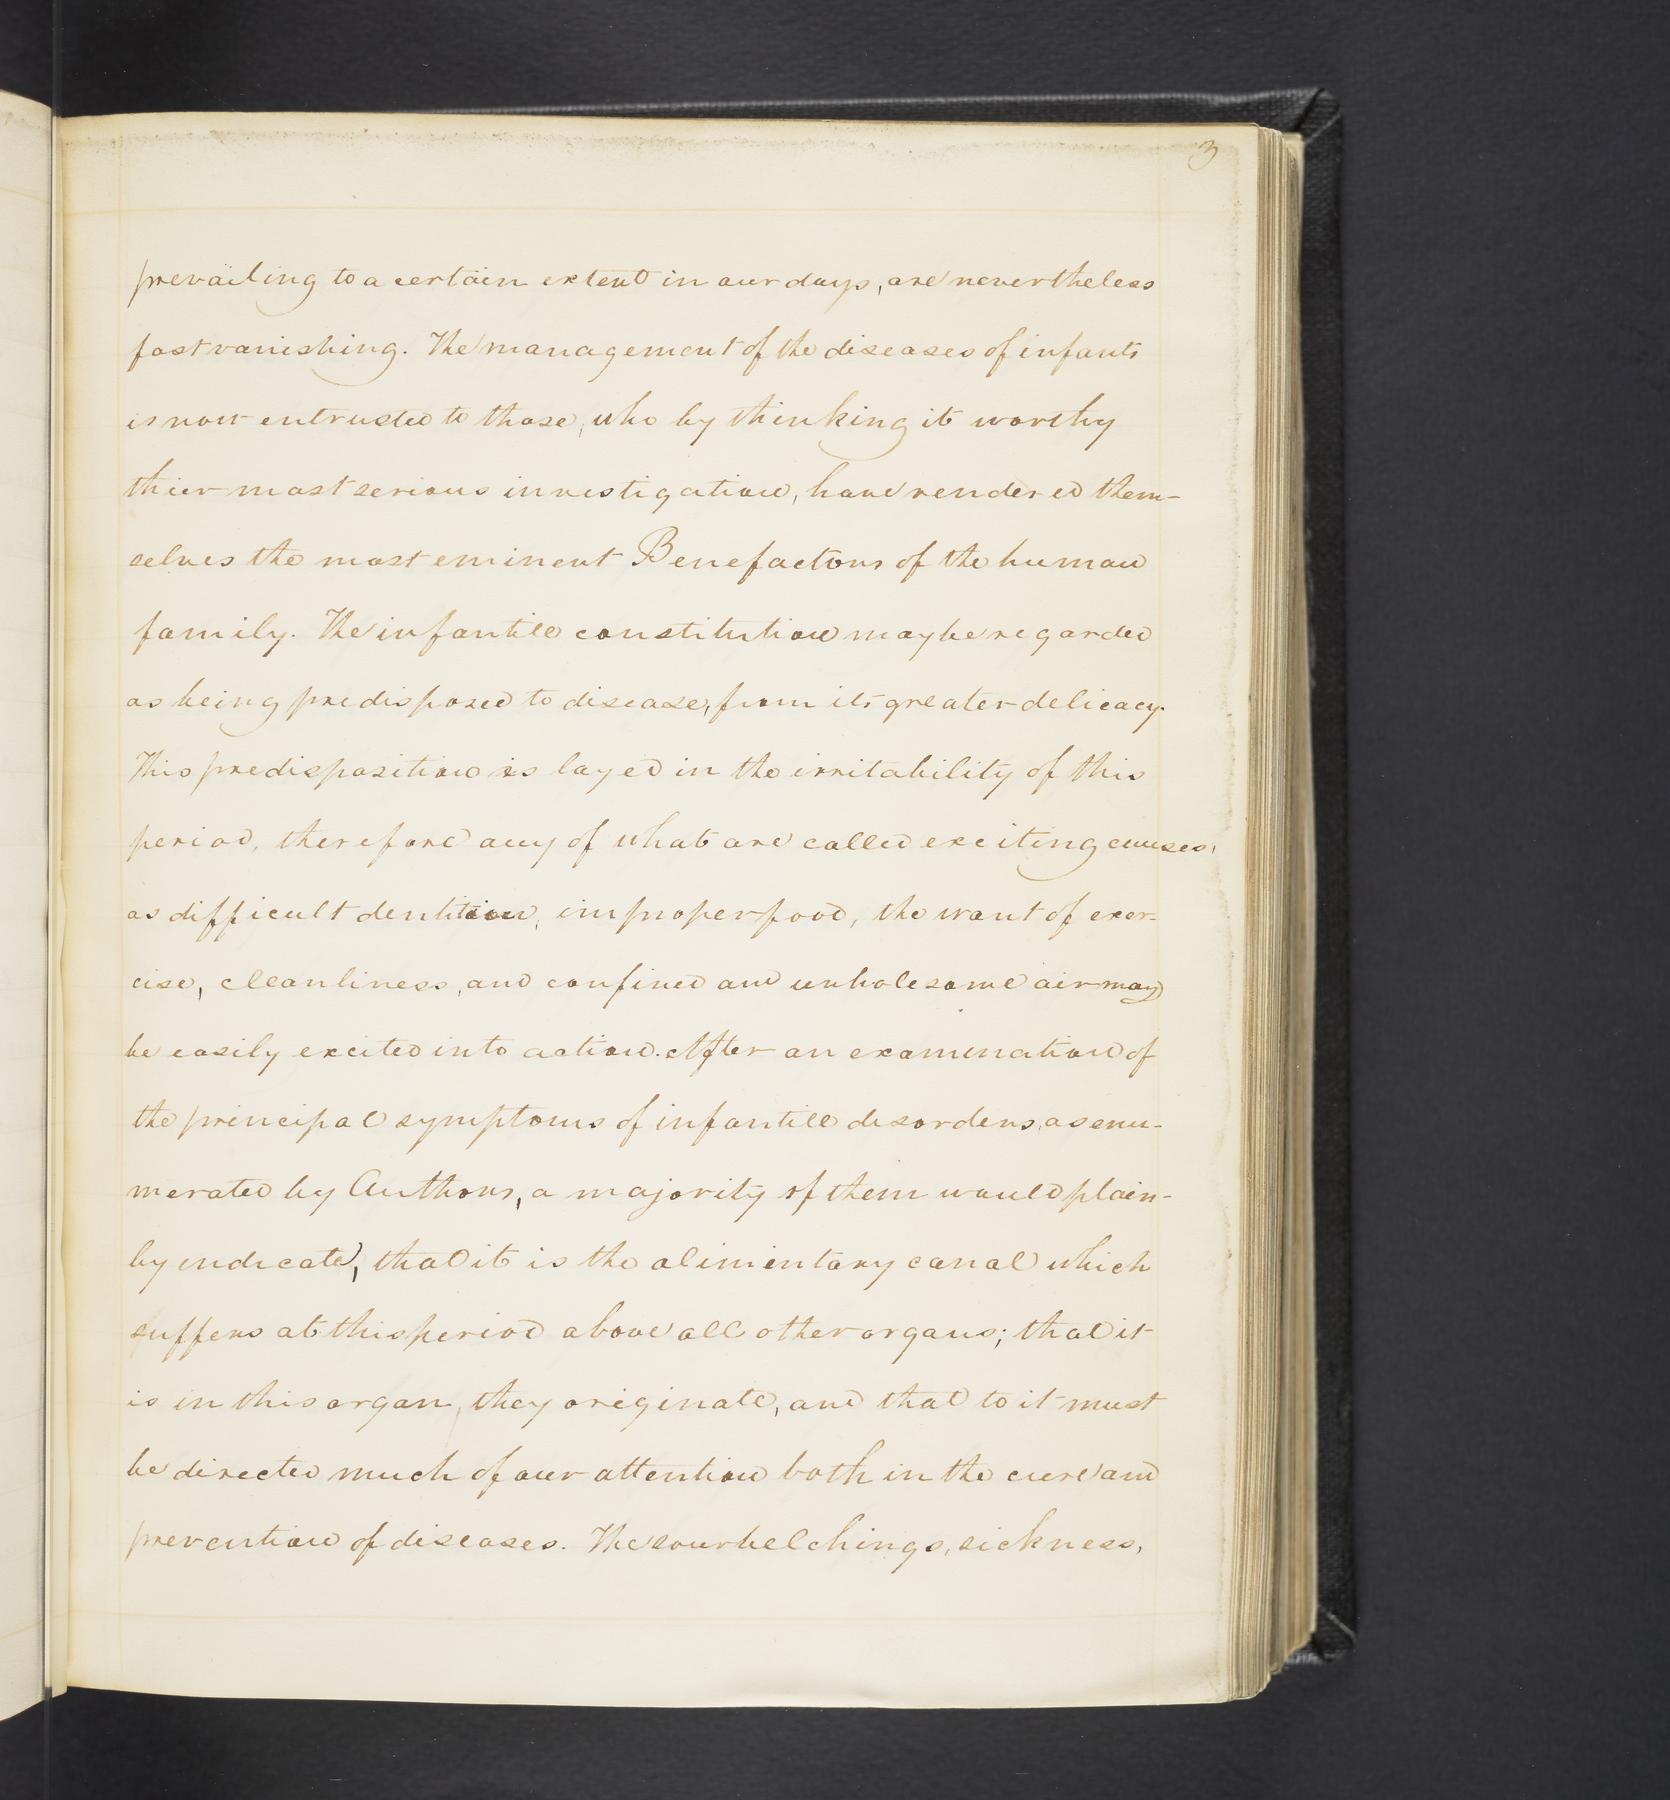 3
prevailing to a certain extent in our days, are nevertheless
fast vanishing. The management of the diseases of infants
is now entrusted to those, who by thinking it worthy
thier most serious investigation, have rendered them-
selves the most eminent Benefactors of the human
family. The infantile constitution may be regarded
as being predisposed to disease, from its greater delicacy.
This predisposition is layed in the irritability of this
period, therefore any of what are called exciting causes,
as difficult dentition, improper food, the want of exer-
cise, cleanliness, and confined and unholesome air may
be easily excited into action. After an examination of
the principal symptoms of infantile disorders, as enu-
merated by Authors, a majority of them would plain-
ly indicate, that it is the alimentary canal which
suffers at this period above all other organs; that it
is in this organ, they originate, and that to it must
be directed much of our attention both in the cure and
prevention of diseases. The sour belchings, sickness,